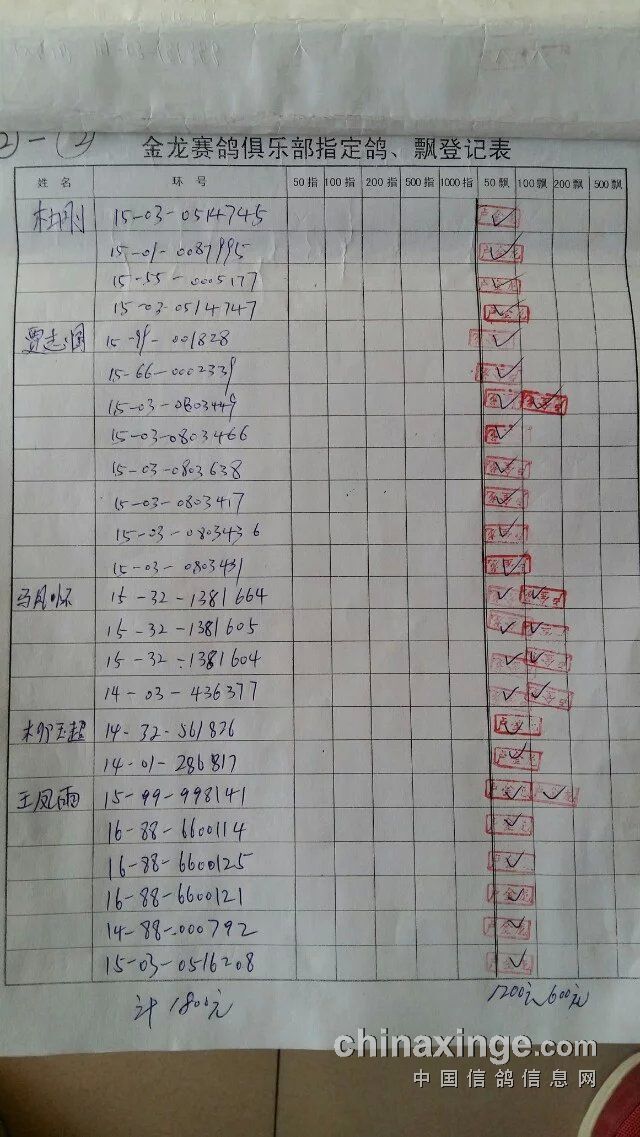 ②-②
金龙赛鸽俱乐部指定鸽、飘登记表
姓 名 环 号 50 指 100 指 200 指 500 指 1000 指 50 飘 100 飘 200 飘 500 飘
杜刚 15-03-0514745
15-01-0087995
15-55-0005177
15-03-0514747
贾志国 15-99-001828
15-66-0002339
15-03-0803449
15-03-0803466
15-03-0803638
15-03-0803417
15-03-0803436
15-03-0803431
马凤怀 15-32-1381664
15-32-1381605
15-32-1381604
14-03-436377
柳玉超 14-32-561826
14-01-286817
王凤雨 15-99-998141
16-88-6600114
16-88-6600125
16-88-6600121
14-88-000792
15-03-0516208
计 1800元 1200元 600元
chinaxinge.com
中国信鸽信息网